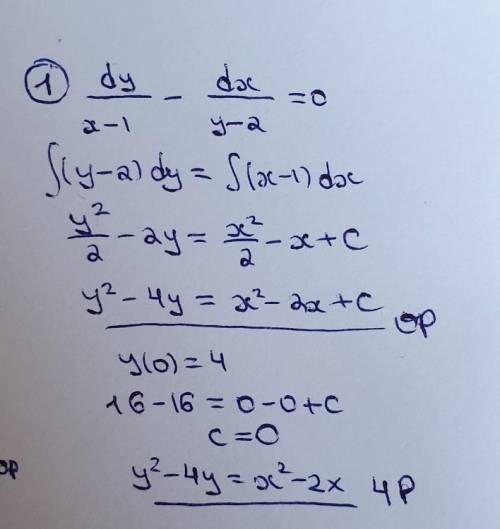 ① dy/(x-1) - dx/(y-2) = 0
∫(y-2) dy = ∫(x-1) dx
y²/2 - 2y = x²/2 - x + C
y² - 4y = x² - 2x + C ОР
y(0) = 4
16 - 16 = 0 - 0 + C
C = 0
y² - 4y = x² - 2x ЧР
ор